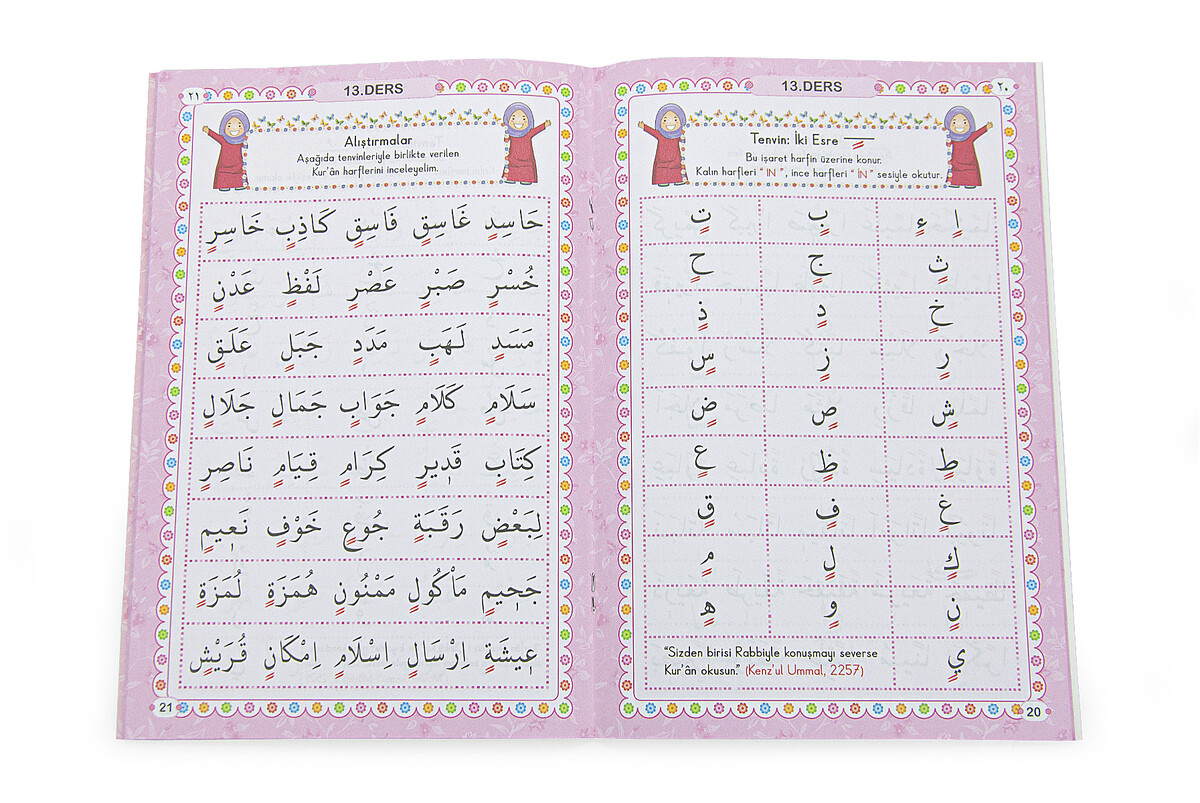 13.DERS ٢٠
Tenvin: İki Esre ـٍـ
Bu işaret harfin üzerine konur.
Kalın harfleri “ IN ”, ince harfleri “ İN ” sesiyle okutur.
اٍ ءٍ بٍ تٍ
ثٍ جٍ حٍ
خٍ دٍ ذٍ
رٍ زٍ سٍ
شٍ صٍ ضٍ
طٍ ظٍ عٍ
غٍ فٍ قٍ
كٍ لٍ مٍ
نٍ وٍ هٍ
يٍ
“Sizden birisi Rabbiyle konuşmayı severse
Kur’ân okusun.” (Kenz’ul Ummal, 2257)
20
13.DERS ٢١
Alıştırmalar
Aşağıda tenvinleriyle birlikte verilen
Kur’ân harflerini inceleyelim.
حَاسِدٍ غَاسِقٍ فَاسِقٍ كَاذِبٍ خَاسِرٍ
خُسْرٍ صَبْرٍ عَصْرٍ لَفْظٍ عَدْنٍ
مَسَدٍ لَهَبٍ مَدَدٍ جَبَلٍ عَلَقٍ
سَلَامٍ كَلَامٍ جَوَابٍ جَمَالٍ جَلَالٍ
كِتَابٍ قَدٖيرٍ كِرَامٍ قِيَامٍ نَاصِرٍ
لِبَعْضٍ رَقَبَةٍ جُوعٍ خَوْفٍ نَعٖيمٍ
جَحٖيمٍ مَاْكُولٍ مَمْنُونٍ هُمَزَةٍ لُمَزَةٍ
عٖيشَةٍ اِرْسَالٍ اِسْلَامٍ اِمْكَانٍ قُرَيْشٍ
21